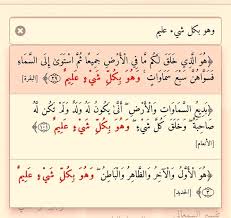 وهو بكل شيء عليم
﴿هُوَ الَّذِي خَلَقَ لَكُم مَّا فِي الْأَرْضِ جَمِيعًا ثُمَّ اسْتَوَىٰ إِلَى السَّمَاءِ
فَسَوَّاهُنَّ سَبْعَ سَمَاوَاتٍ ۚ وَهُوَ بِكُلِّ شَيْءٍ عَلِيمٌ ٢٩﴾ [البقرة]
﴿بَدِيعُ السَّمَاوَاتِ وَالْأَرْضِ ۖ أَنَّىٰ يَكُونُ لَهُ وَلَدٌ وَلَمْ تَكُن لَّهُ
صَاحِبَةٌ ۖ وَخَلَقَ كُلَّ شَيْءٍ ۖ وَهُوَ بِكُلِّ شَيْءٍ عَلِيمٌ ١٠١﴾
[الأنعام]
﴿هُوَ الْأَوَّلُ وَالْآخِرُ وَالظَّاهِرُ وَالْبَاطِنُ ۖ وَهُوَ بِكُلِّ شَيْءٍ عَلِيمٌ
٣﴾ [الحديد]